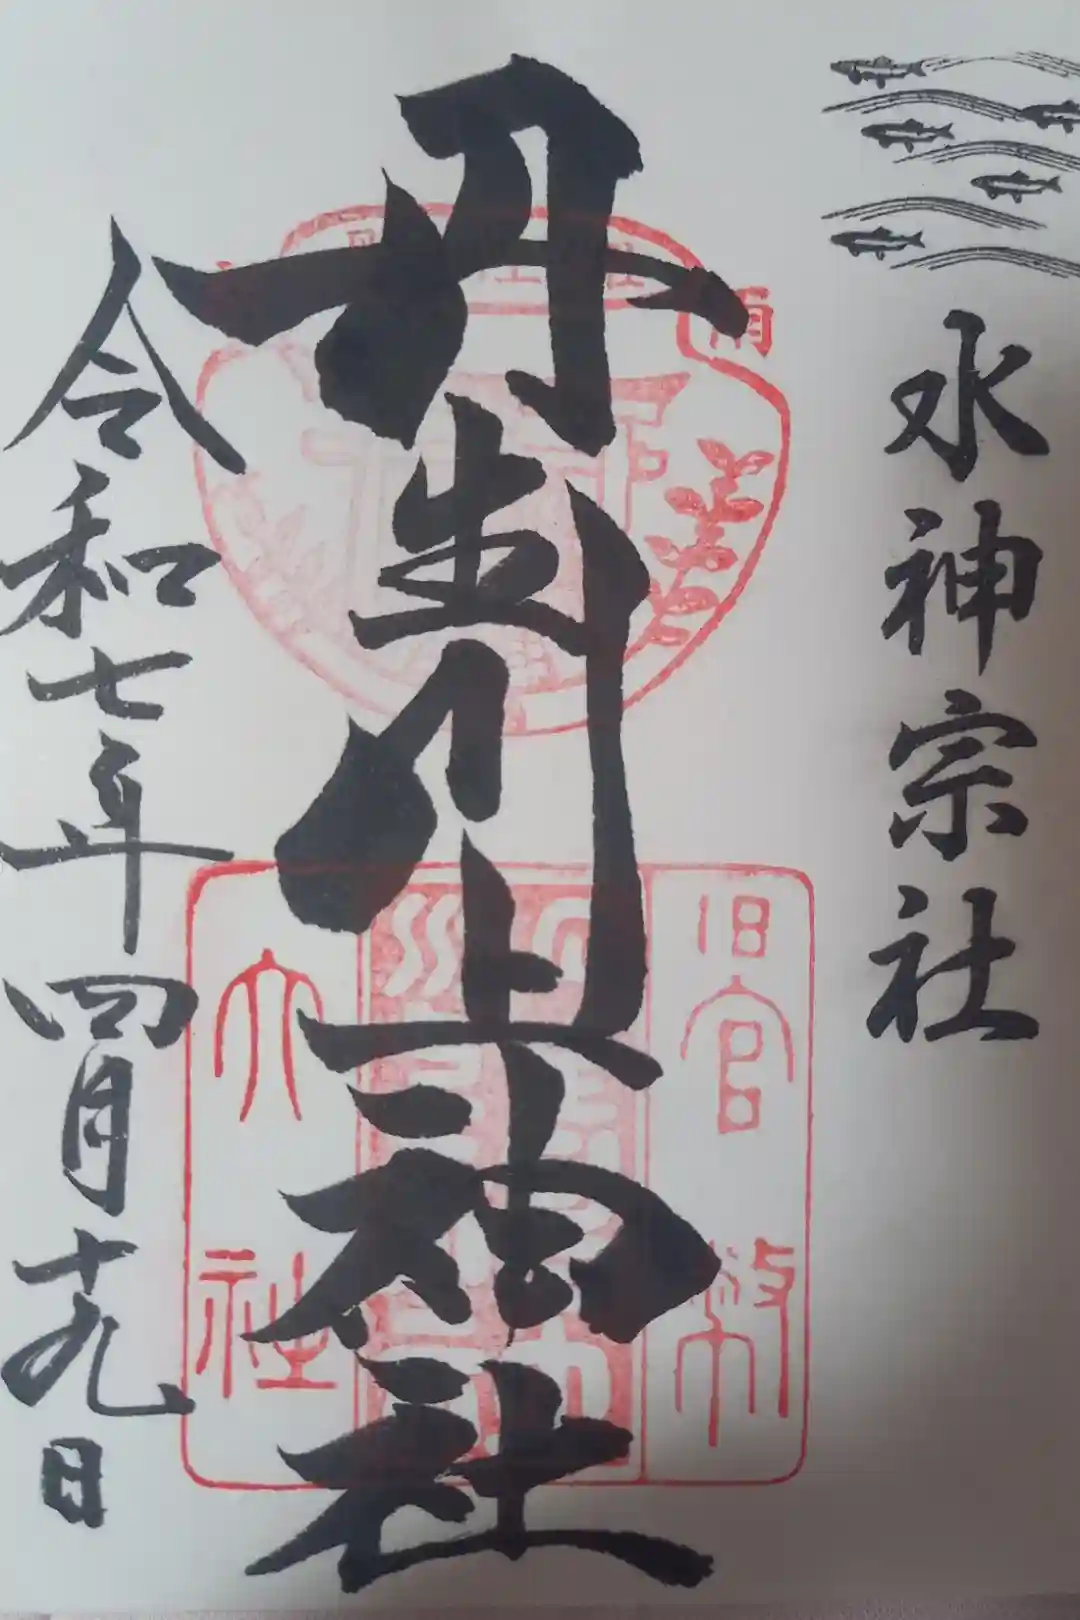 水神宗社
丹生川上神社
令和七年四月十九日
旧官幣
大社